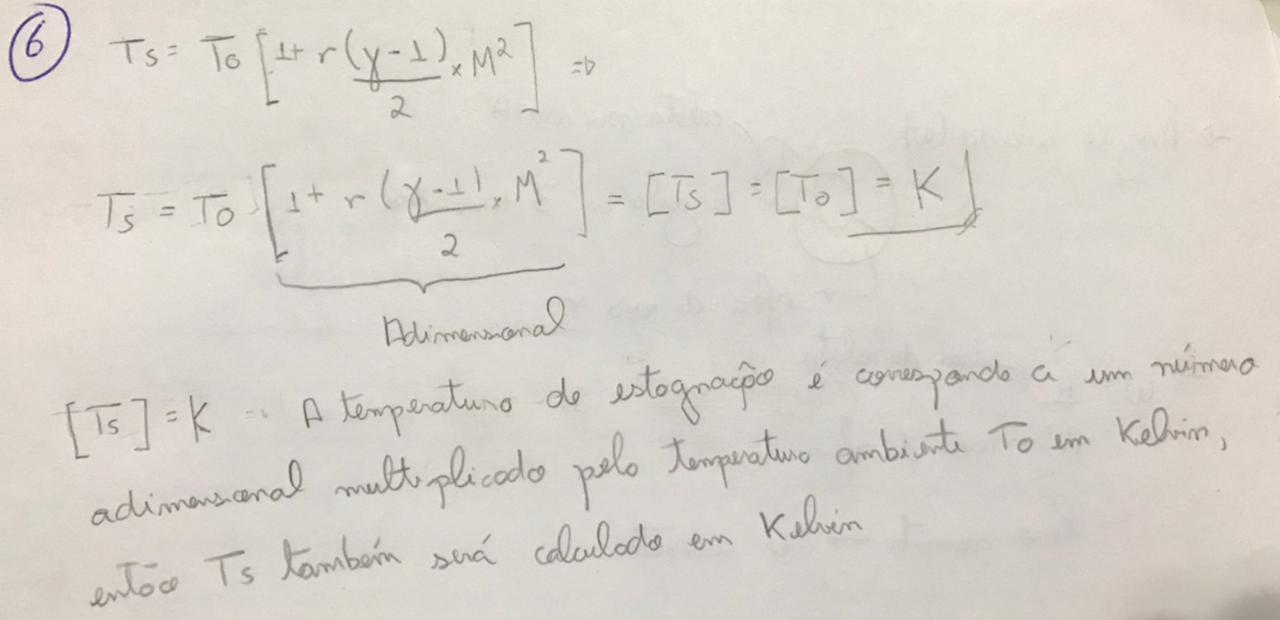 6 Ts = To [1 + r (γ - 1)/2 × M²] ⇒
Ts = To [1 + r (γ - 1)/2 × M²] = [Ts] = [To] = K
Adimensional
[Ts] = K ∴ A temperatura de estagnação é corresponde a um número
adimensional multiplicado pela temperatura ambiente To em Kelvin,
então Ts também será calculado em Kelvin